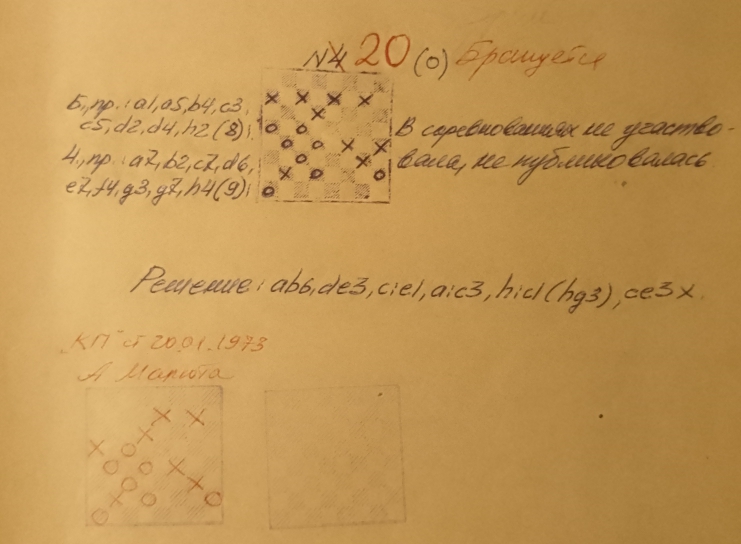 N4 20 (о) Бракуется
Б., пр.: a1, a5, b4, c3,
c5, d2, d4, h2 (8);
Ч., пр.: a7, b2, c7, d6,
e7, f4, g3, g7, h4 (9);
В соревнованиях не участво-
вала, не публиковалась
Решение: ab6, de3, c:e1, a:c3, h:c1 (hg3), ce3 x.
"КП" от 20.01.1973
А Марюта